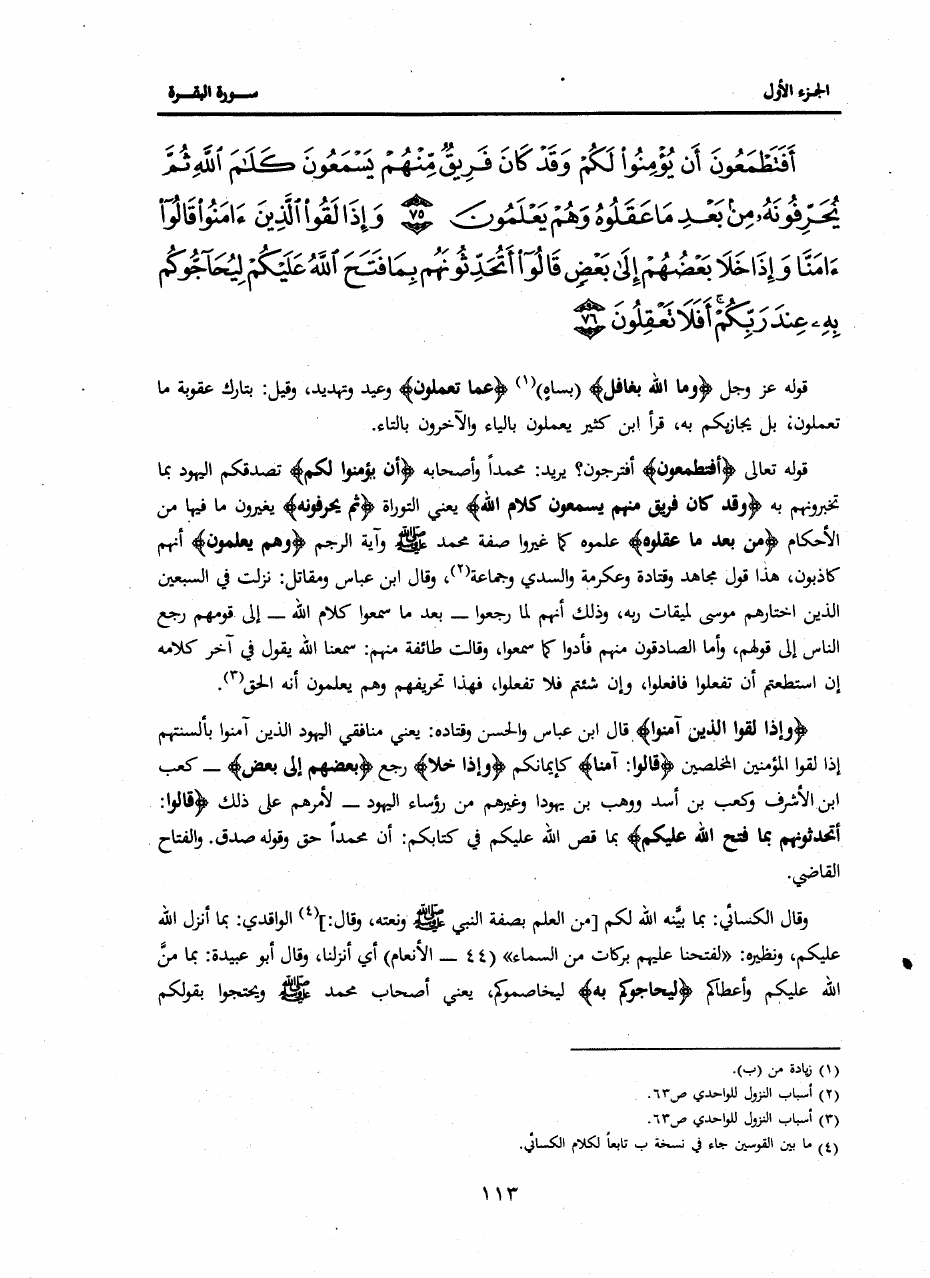 الجزء الأول
سورة البقرة
أَفَتَطْمَعُونَ أَن يُؤْمِنُوا۟ لَكُمْ وَقَدْ كَانَ فَرِيقٌ مِّنْهُمْ يَسْمَعُونَ كَلَـٰمَ ٱللَّهِ ثُمَّ
يُحَرِّفُونَهُۥ مِنۢ بَعْدِ مَا عَقَلُوهُ وَهُمْ يَعْلَمُونَ ٧٥ وَإِذَا لَقُوا۟ ٱلَّذِينَ ءَامَنُوا۟ قَالُوٓا۟
ءَامَنَّا وَإِذَا خَلَا بَعْضُهُمْ إِلَىٰ بَعْضٍ قَالُوٓا۟ أَتُحَدِّثُونَهُم بِمَا فَتَحَ ٱللَّهُ عَلَيْكُمْ لِيُحَآجُّوكُم
بِهِۦ عِندَ رَبِّكُمْ ۚ أَفَلَا تَعْقِلُونَ ٧٦
قوله عز وجل ﴿وما الله بغافل﴾ (بساهٍ)(١) ﴿عما تعملون﴾ وعيد وتهديد، وقيل: بتارك عقوبة ما
تعملون؛ بل يجازيكم به، قرأ ابن كثير يعملون بالياء والآخرون بالتاء.
قوله تعالى ﴿أفتطمعون﴾ أفترجون؟ يريد: محمداً وأصحابه ﴿أن يؤمنوا لكم﴾ تصدقكم اليهود بما
تخبرونهم به ﴿وقد كان فريق منهم يسمعون كلام الله﴾ يعني التوراة ﴿ثم يحرفونه﴾ يغيرون ما فيها من
الأحكام ﴿من بعد ما عقلوه﴾ علموه كما غيروا صفة محمد ﷺ وآية الرجم ﴿وهم يعلمون﴾ أنهم
كاذبون، هذا قول مجاهد وقتادة وعكرمة والسدي وجماعة(٢)، وقال ابن عباس ومقاتل: نزلت في السبعين
الذين اختارهم موسى لميقات ربه، وذلك أنهم لما رجعوا ــ بعد ما سمعوا كلام الله ــ إلى قومهم رجع
الناس إلى قولهم، وأما الصادقون منهم فأدوا كما سمعوا، وقالت طائفة منهم: سمعنا الله يقول في آخر كلامه
إن استطعتم أن تفعلوا فافعلوا، وإن شئتم فلا تفعلوا، فهذا تحريفهم وهم يعلمون أنه الحق(٣).
﴿وإذا لقوا الذين آمنوا﴾ قال ابن عباس والحسن وقتاده: يعني منافقي اليهود الذين آمنوا بألسنتهم
إذا لقوا المؤمنين المخلصين ﴿قالوا: آمنا﴾ كإيمانكم ﴿وإذا خلا﴾ رجع ﴿بعضهم إلى بعض﴾ ــ كعب
ابن الأشرف وكعب بن أسد ووهب بن يهودا وغيرهم من رؤساء اليهود ــ لأمرهم على ذلك ﴿قالوا:
أتحدثونهم بما فتح الله عليكم﴾ بما قص الله عليكم في كتابكم: أن محمداً حق وقوله صدق. والفتاح
القاضي.
وقال الكسائي: بما بيَّنه الله لكم [من العلم بصفة النبي ﷺ ونعته، وقال:](٤) الواقدي: بما أنزل الله
عليكم، ونظيره: «لفتحنا عليهم بركات من السماء» (٤٤ ــ الأنعام) أي أنزلنا، وقال أبو عبيدة: بما منَّ
الله عليكم وأعطاكم ﴿ليحاجوكم به﴾ ليخاصموكم، يعني أصحاب محمد ﷺ ويحتجوا بقولكم
(١) زيادة من (ب).
(٢) أسباب النزول للواحدي ص٦٣.
(٣) أسباب النزول للواحدي ص٦٣.
(٤) ما بين القوسين جاء في نسخة ب تابعاً لكلام الكسائي.
١١٣